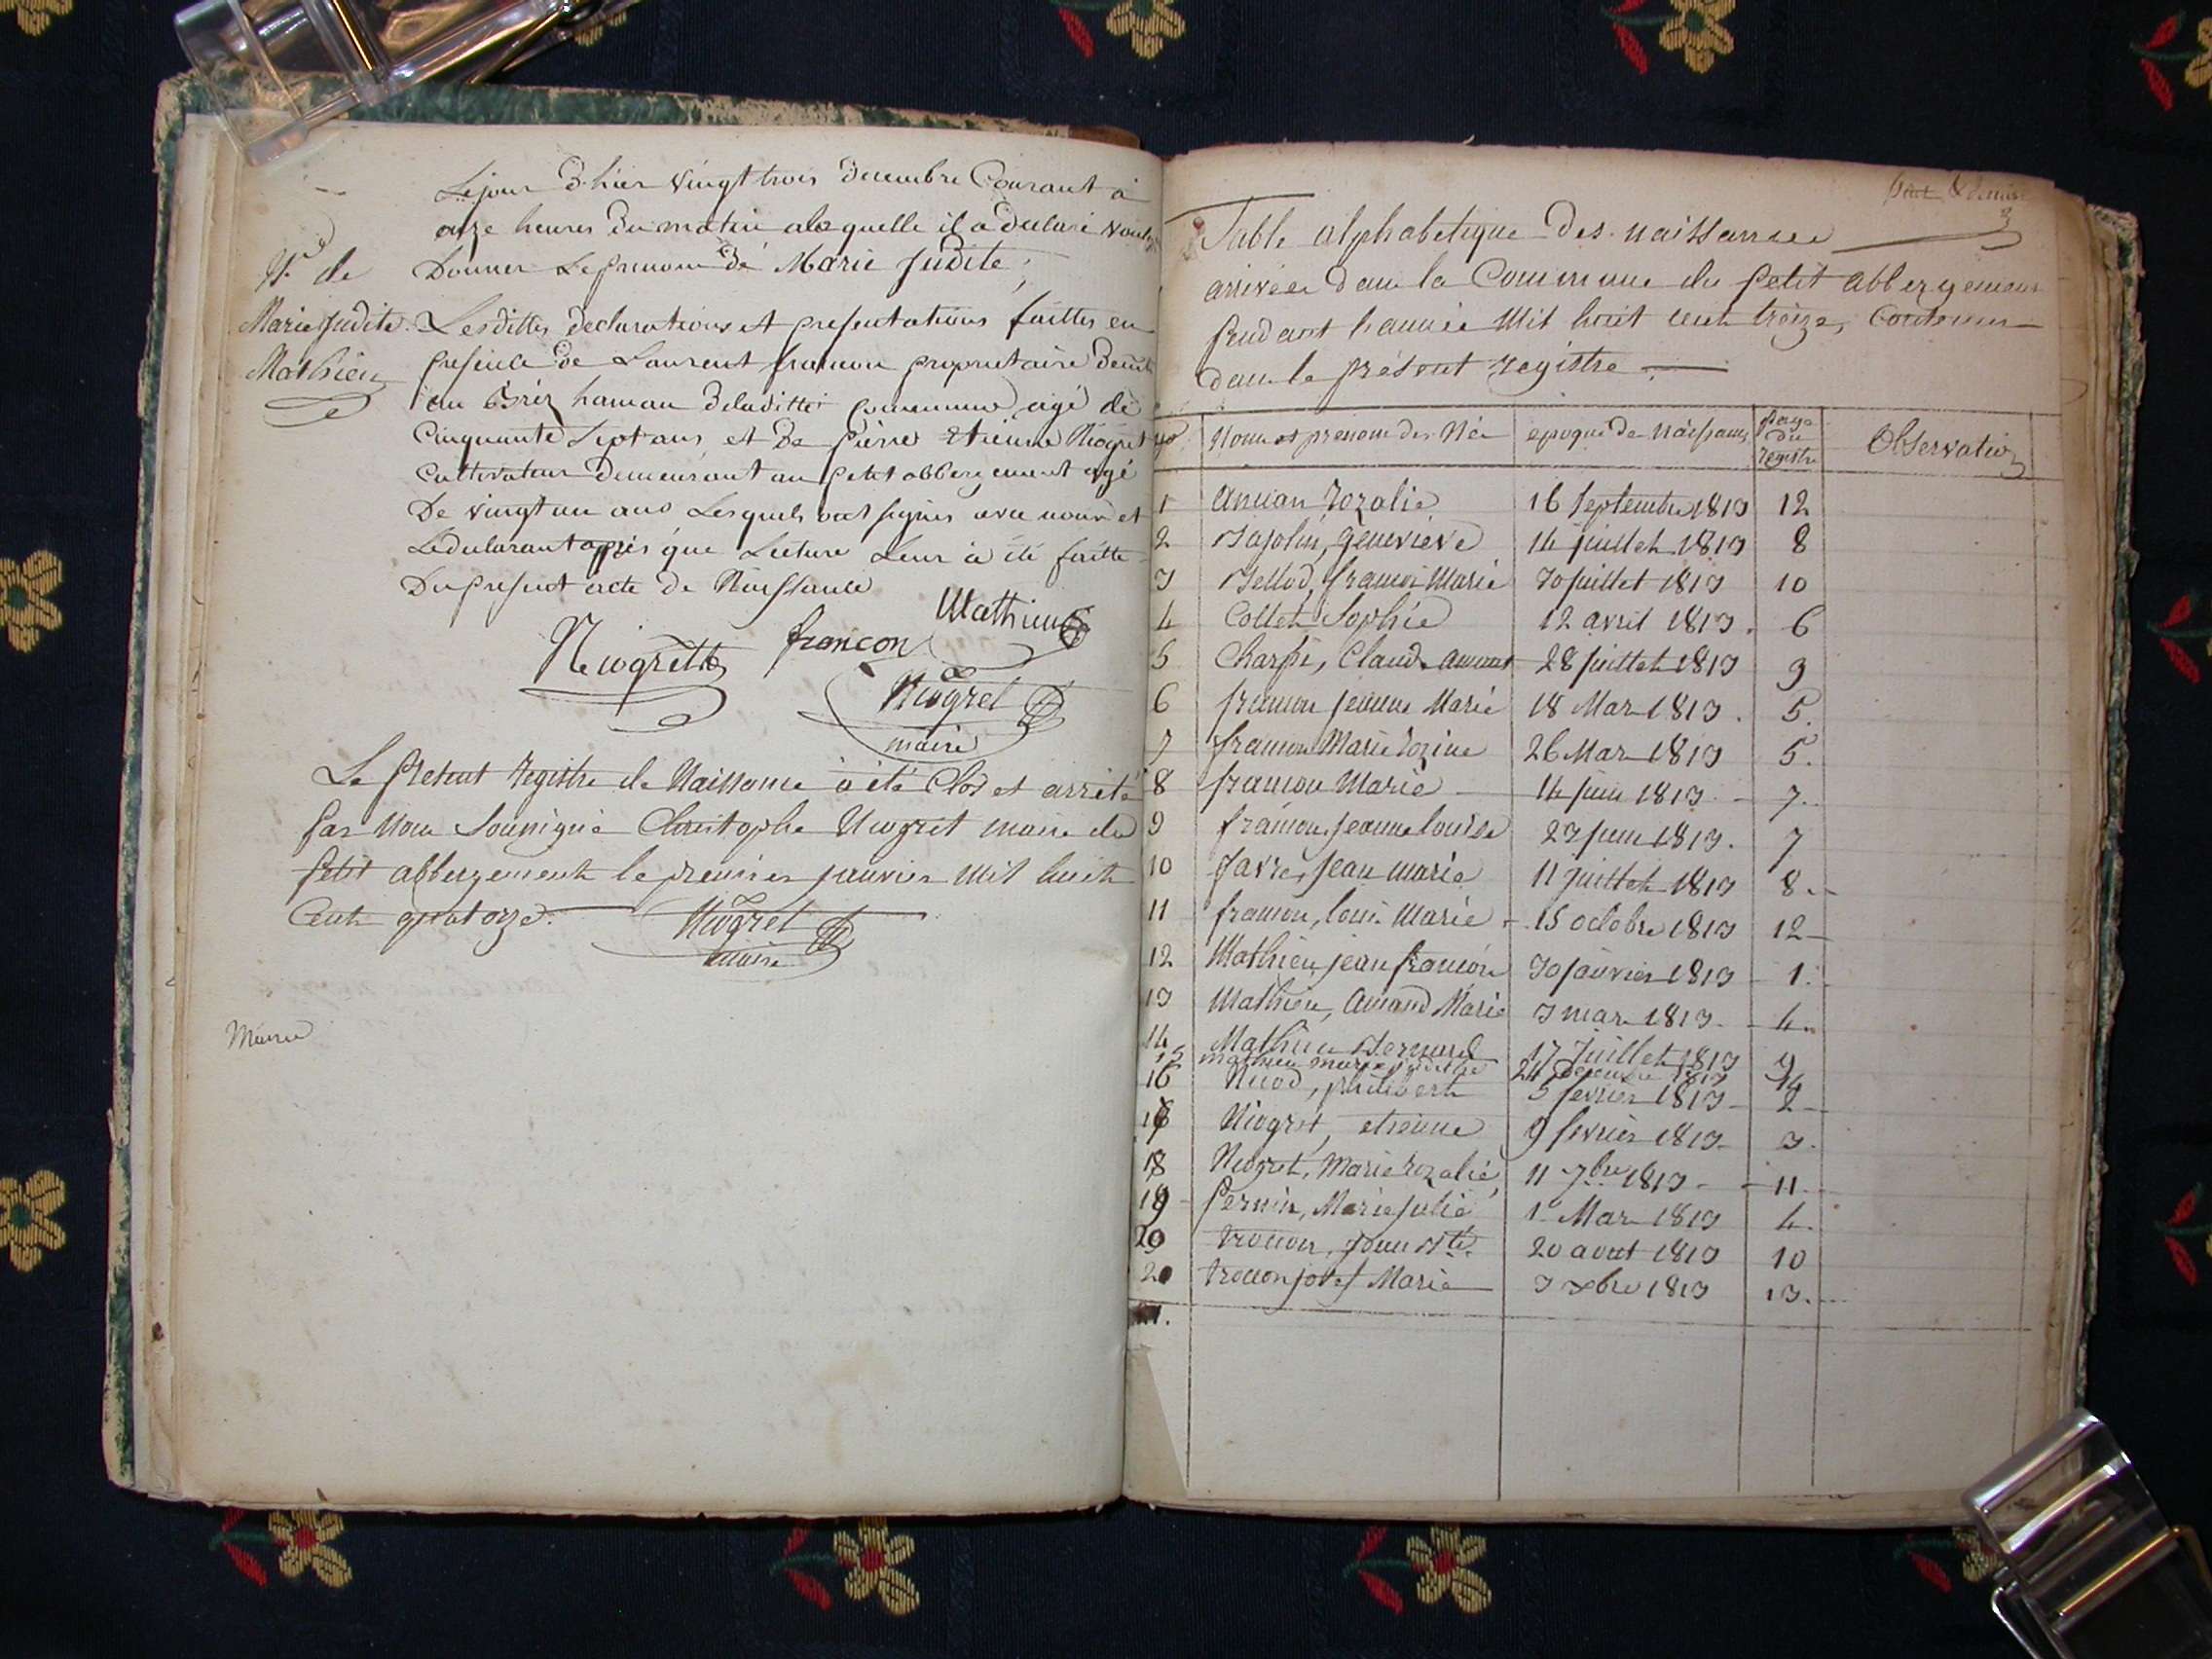 Le jour d'hier vingt trois decembre Courant à
onze heures du matin alaquelle il a declaré vouloir
Donner Le prenom dé Marie Judite;
N.ce de
Marie Judite
Mathieu
Les dittes declarations et presentations faittes en
presence de Laurent francon proprietaire demt
au hamau deladitte commune, agé de
Cinquante Sept ans, et de pierre Etienne Niogret
Cultivateur demeurant au petit abbergement agé
De vingt un ans Lesquels ont signés avec nous et
Le declarant après que Lecture Leur à été faitte
Du present acte de Naissance
Mathieu
Niogret francon
Niogret
maire
Le présent registre de Naissance à été Clos et arrêté
par Nous Soussigné Christophe Niogret maire du
petit abbergement le premier janvier Mil huit
Cent quatorze.
Niogret
maire
petit
Table alphabetique des naissances
arrivées dans la Commune du petit abbergement
pendant l'année Mil huit cent treize, Contenues
dans le présent registre
No Noms et prenoms des Nés epoque de Naissance page du registre Observation
1 Ancian Rozalie 16 Septembre 1813 12
2 Bajolin, Genevieve 14 juillet 1813 8
3 Bellod, francois Marie 30 juillet 1813 10
4 Collet Sophie 12 avril 1813. 6
5 Charpi, Claude 28 juillet 1813 9
6 francon jeanne Marie 18 Mars 1813. 5.
7 francon Marie Rozine 26 Mars 1813 5.
8 francon Marie 14 juin 1813 7.
9 francon, jeanne louise 23 juin 1813. 7
10 favre, jean marie 11 juillet 1813 8.
11 francon, louis Marie 15 octobre 1813 12
12 Mathieu, jean francois 30 janvier 1813 1.
13 Mathieu, Amand Marie 3 mars 1813 4.
14 Mathieu Bernard 17 Juillet 1813 9
15 mathieu marie judithe 24 Decembre 1813 14
16 Nicod, philibert 5 fevrier 1813 2
17 Niogret, etienne 9 fevrier 1813 3.
18 Niogret, Marie Rozalie 11 7bre 1813 11
19 Pernin, Marie julie 1 Mars 1813 4.
20 trocon, jean Bte. 20 aout 1813 10
20 trocon josef Marie 3 xbre 1813 13.
21.